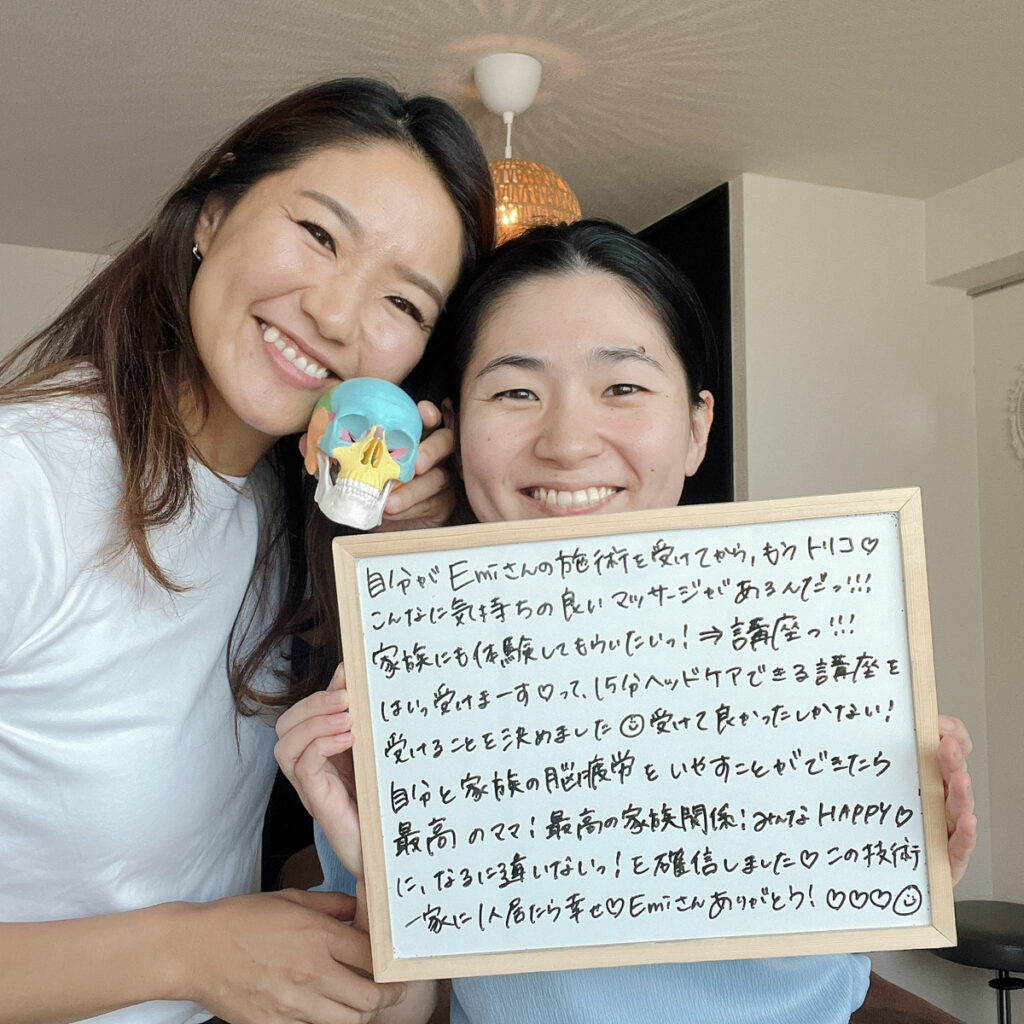 自分がEmiさんの施術を受けてから,もうトリコ♡
こんなに気持ちの良いマッサージがあるんだっ!!!
家族にも体験してもらいたいっ!⇒講座っ!!!
はいっ受けまーす♡って、15分ヘッドケアできる講座を
受けることを決めました☺受けて良かったしかない!
自分と家族の脳疲労をいやすことができたら
最高のママ!最高の家族関係!みんなHAPPY♡
に、なるに違いないっ!を確信しました♡この技術
一家に1人居たら幸せ♡Emiさんありがとう!♡♡♡☺